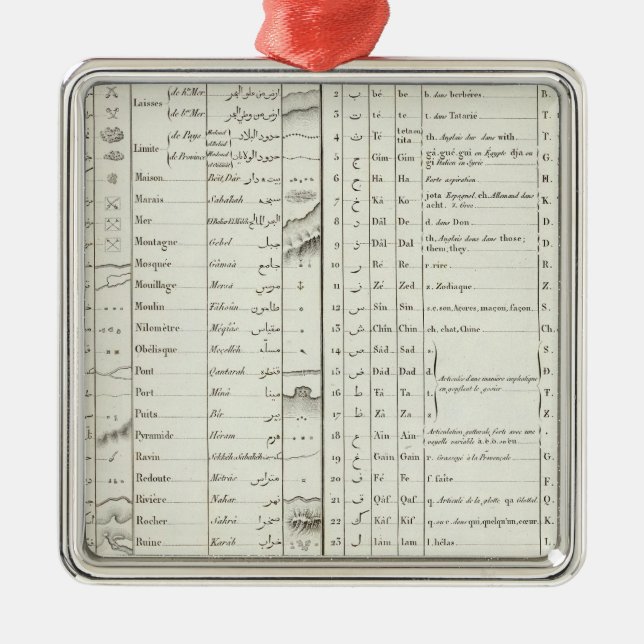 Laisses (de Hte Mer
(de bse Mer
Limite (de Pays
(de Province
Maison Beit, Dâr بيت دار
Marais Sabakah سبخه
Mer El Bahar El Mâleh البحر المالح
Montagne Gebel جبل
Mosquée Gâmaà جامع
Mouillage Mersä مرسي
Moulin Tâhoûn طاحون
Nilomètre Méqiâs مقياس
Obélisque Meçelleh مسله
Pont Qantarah قنطره
Port Mînâ مينا
Puits Bîr بير
Pyramide Heram هرم
Ravin
Redoute Métrâs متراس
Rivière Nahar نهر
Rocher Sakrâ صخرا
Ruine Karâb خراب
2 ب bé be b. dans berbères. B.
3 ت té te t. dans Tatarie. T.
4 ث Té teta ou tita th. Anglais dur dans with. T.
5 ج Gim Gim gâ, gué, gui en Egypte dja ou gi Italien en Syrie G.
6 ح Hâ Ha Forte aspiration H.
7 خ Kâ Ka jota Espagnol, ch. Allemand dans acht. χ Grec K.
8 د Dâl De d. dans Don. D.
9 ذ Dâl Dal th, Anglais doux dans those; them, they. D.
10 ر Ré Re r. rire. R.
11 ز Zé Zed z. Zodiaque Z.
12 س Sin Sin s. ce, son, Açores, maçon, façon. S.
13 ش Chin Chin ch, chat, Chine. Ch.
14 ص Sâd Sad s. S.
15 ض Dâd Dad d. Articulés d'une manière emphatique en gonflant le gosier D.
16 ط Tâ Ta t. T.
17 ظ Zâ Za z Z.
18 ع Aïn Ain Articulation gutturale, forte avec une voyelle variable a. e. o. ou eu.
19 غ Gaïn Gaïn r. Grasseyé à la Provençale G.
20 ف Fé Fe f. faite F.
21 ق Qâf Qaf q. Articulé de la glotte, qa Glottal. Q.
22 ك Kâf Kif q. ou c. dans qui, quelqu'un, cœur. K.
23 ل lâm lam l. hélas. L.